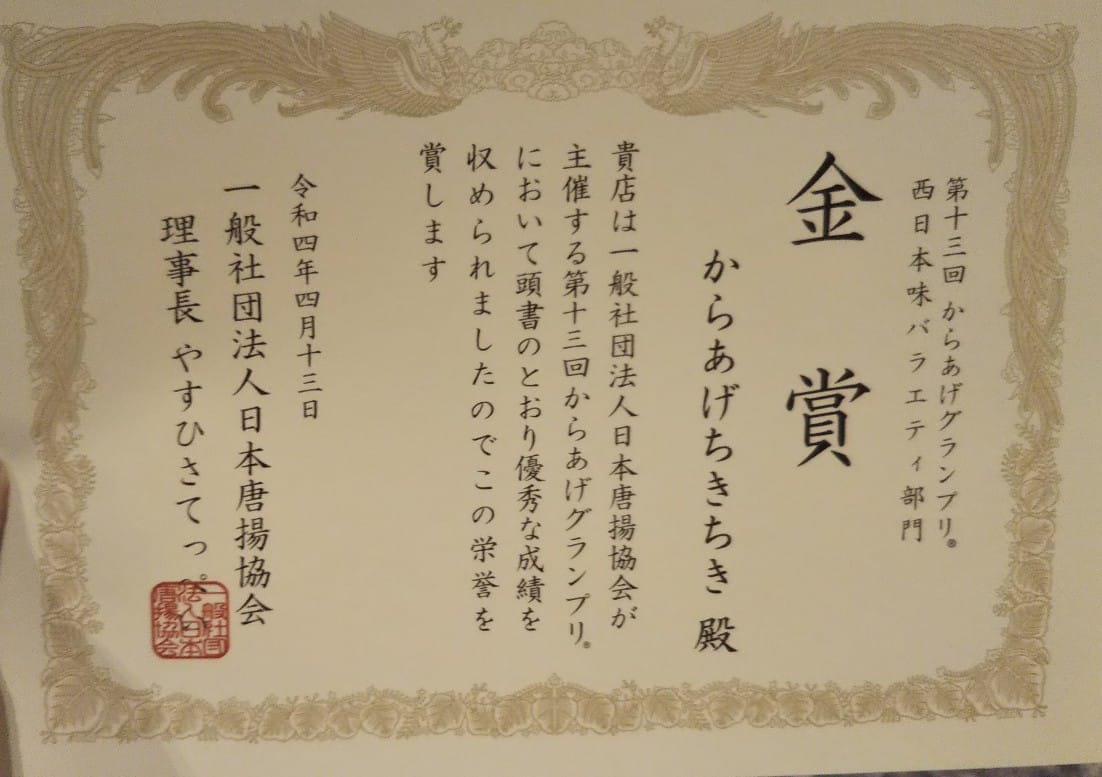 第十三回 からあげグランプリ®
西日本味バラエティ部門
金賞
からあげちきちき 殿
貴店は一般社団法人日本唐揚協会が
主催する第十三回からあげグランプリ®
において頭書のとおり優秀な成績を
収められましたのでこの栄誉を
賞します
令和四年四月十三日
一般社団法人日本唐揚協会
理事長 やすひさてっぺい
一般社団
法人日本
唐揚協会